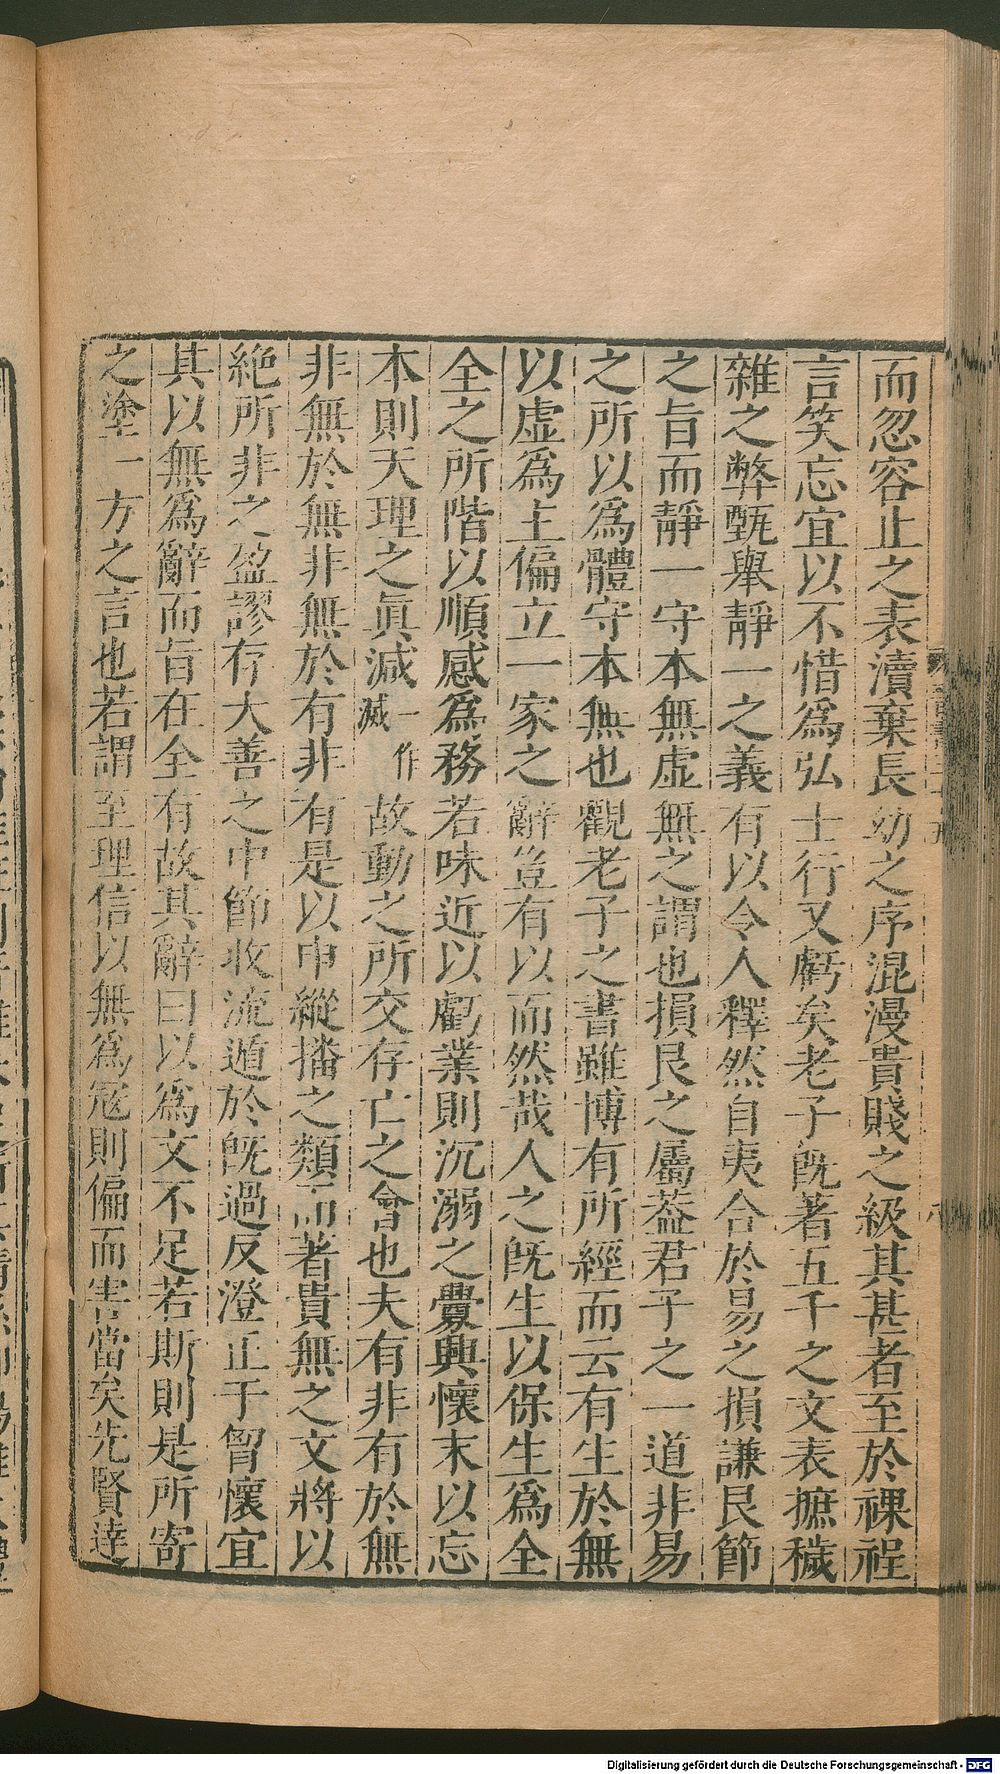 而忽容止之表瀆棄長幼之序混漫貴賤之級其甚者至於裸裎
言笑忘宜以不惜爲弘士行又虧矣老子旣著五千之文表摭穢
雜之弊甄舉靜一之義有以令人釋然自夷合於易之損謙艮節
之旨而靜一守本無虚無之謂也損艮之屬葢君子之一道非易
之所以爲體守本無也觀老子之書雖博有所經而云有生於無
以虚爲主偏立一家之辭豈有以而然哉人之旣生以保生爲全
全之所階以順感爲務若味近以虧業則沉溺之釁興懷末以忘
本則天理之眞減一作滅故動之所交存亡之會也夫有非有於無
非無於無非無於有非有是以申縱播之類而著貴無之文將以
絶所非之盈謬存大善之中節收流遁於旣過反澄正于胷懷宜
其以無爲辭而旨在全有故其辭曰以爲文不足若斯則是所寄
之塗一方之言也若謂至理信以無爲宼則偏而害當矣先賢逹
Digitalisierung gefördert durch die Deutsche Forschungsgemeinschaft - DFG